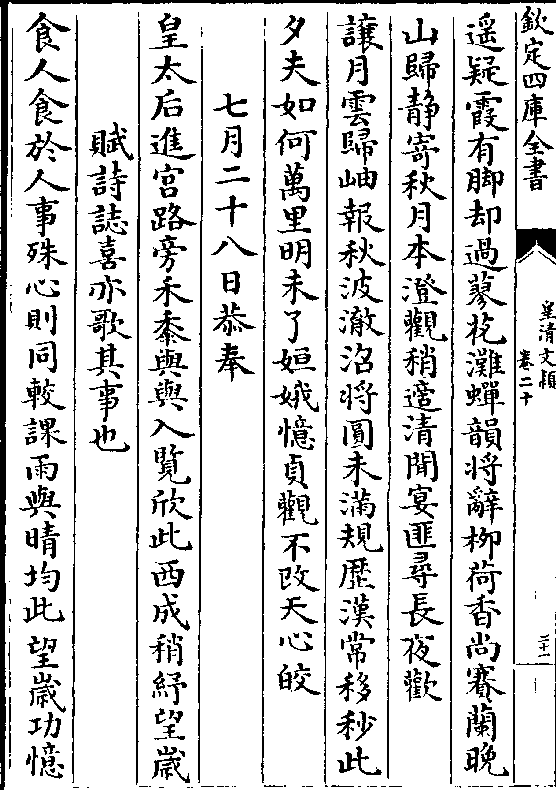 欽定四庫全書
皇清文穎
卷二十
二十一
遥疑霞有脚却過蓼花灘蟬韻將辭柳荷香尚賽蘭晚
山歸静寄秋月本澄觀稍遲清閒宴匪尋長夜歡
讓月雲歸岫報秋波澈沼將圓未滿規歴漢常移秒此
夕夫如何萬里明未了姮娥憶貞觀不改天心皎
七月二十八日恭奉
皇太后進宫路旁禾黍與與入覽欣此西成稍紓望歳
賦詩誌喜亦歌其事也
食人食於人事殊心則同較課雨與晴均此望歳功憶